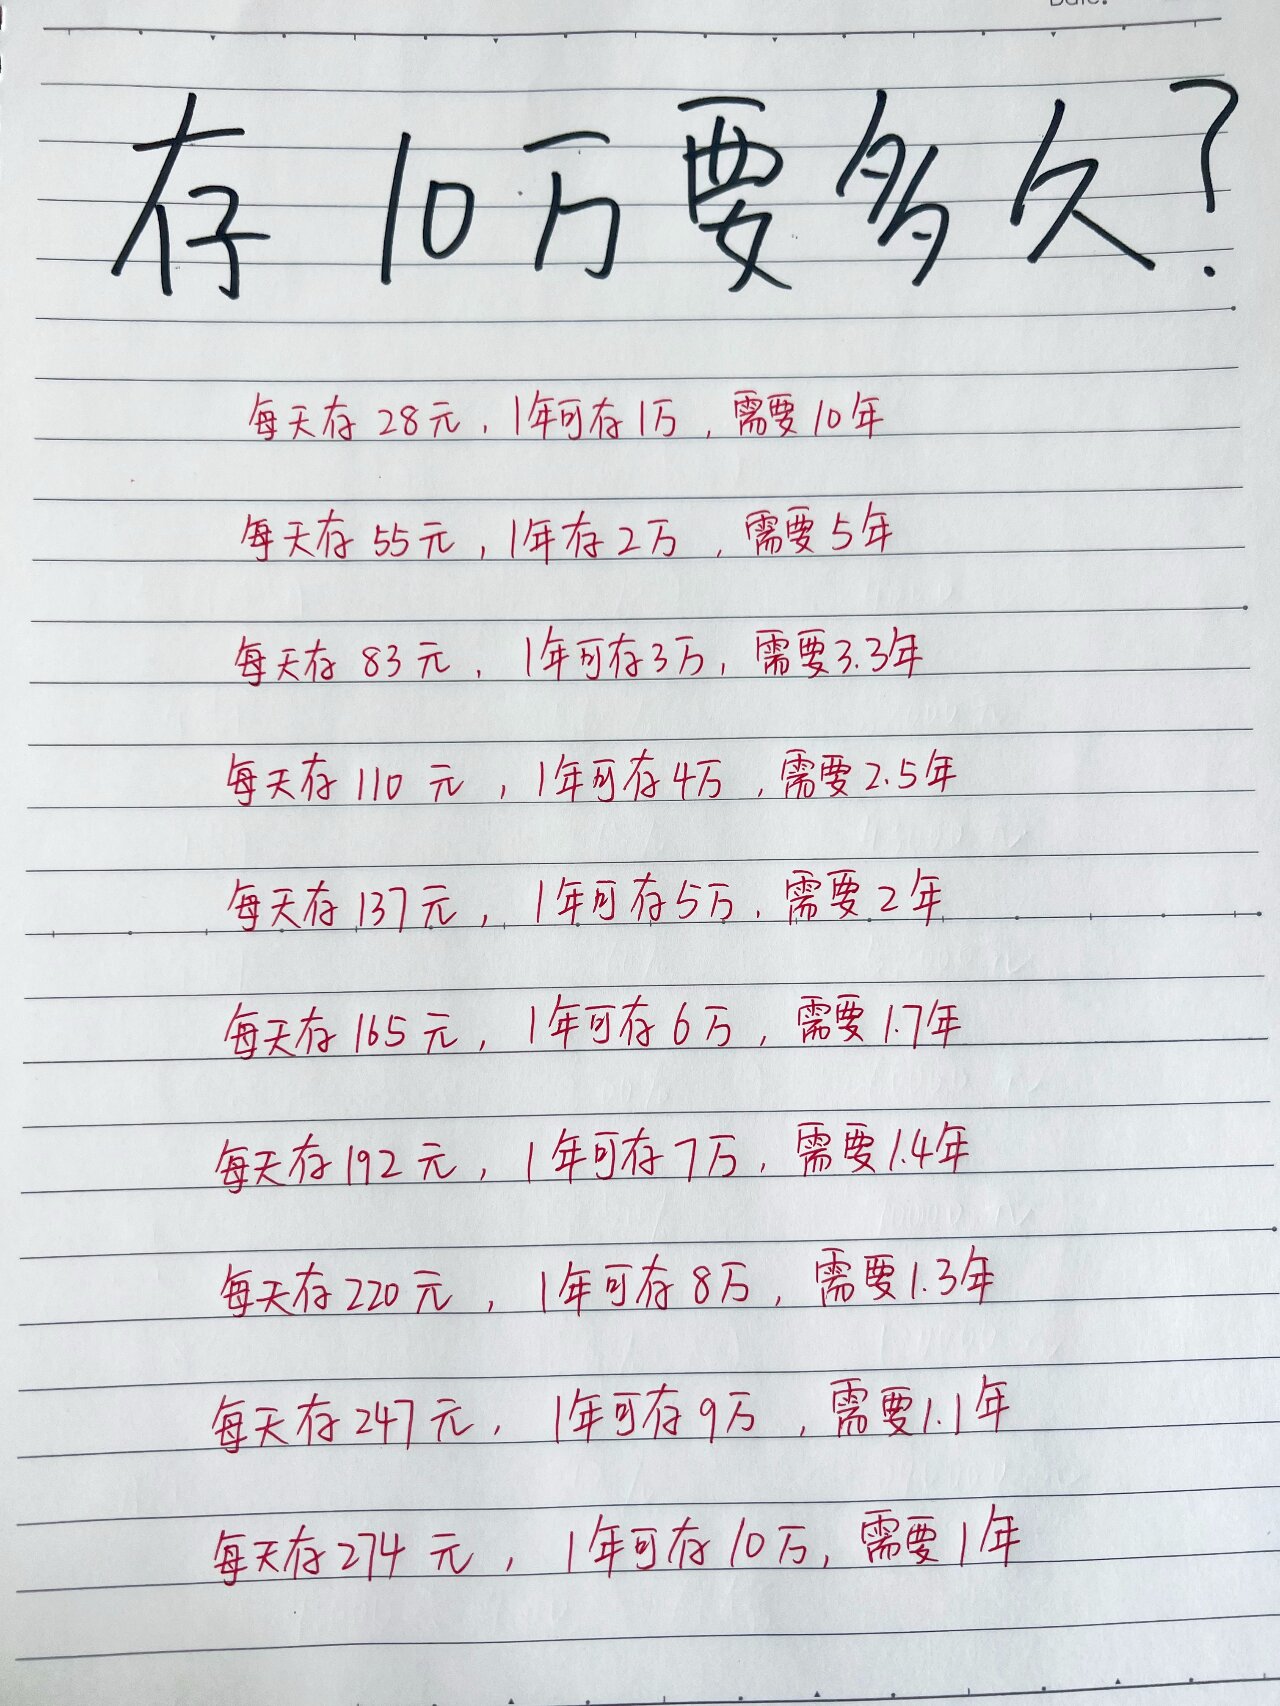 Date.
存10万要多久?
每天存28元，1年可存1万，需要10年
每天存55元，1年存2万，需要5年
每天存83元，1年可存3万，需要3.3年
每天存110元，1年可存4万，需要2.5年
每天存137元，1年可存5万，需要2年
每天存165元，1年可存6万，需要1.7年
每天存192元，1年可存7万，需要1.4年
每天存220元，1年可存8万，需要1.3年
每天存247元，1年可存9万，需要1.1年
每天存274元，1年可存10万，需要1年